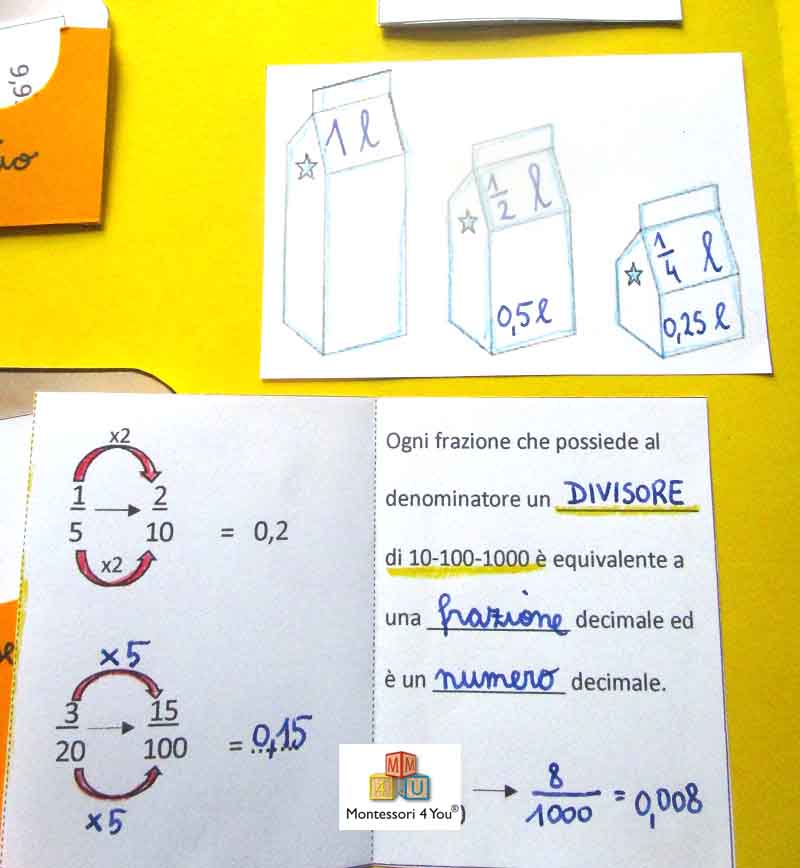 9,9
1 l
1/2 l
0,5 l
1/4 l
0,25 l
x2
1/5 → 2/10 = 0,2
x2
x5
3/20 → 15/100 = 0,15
x5
Ogni frazione che possiede al
denominatore un DIVISORE
di 10-100-1000 è equivalente a
una frazione decimale ed
è un numero decimale.
→ 8/1000 = 0,008
MM
4U
Montessori 4 You®